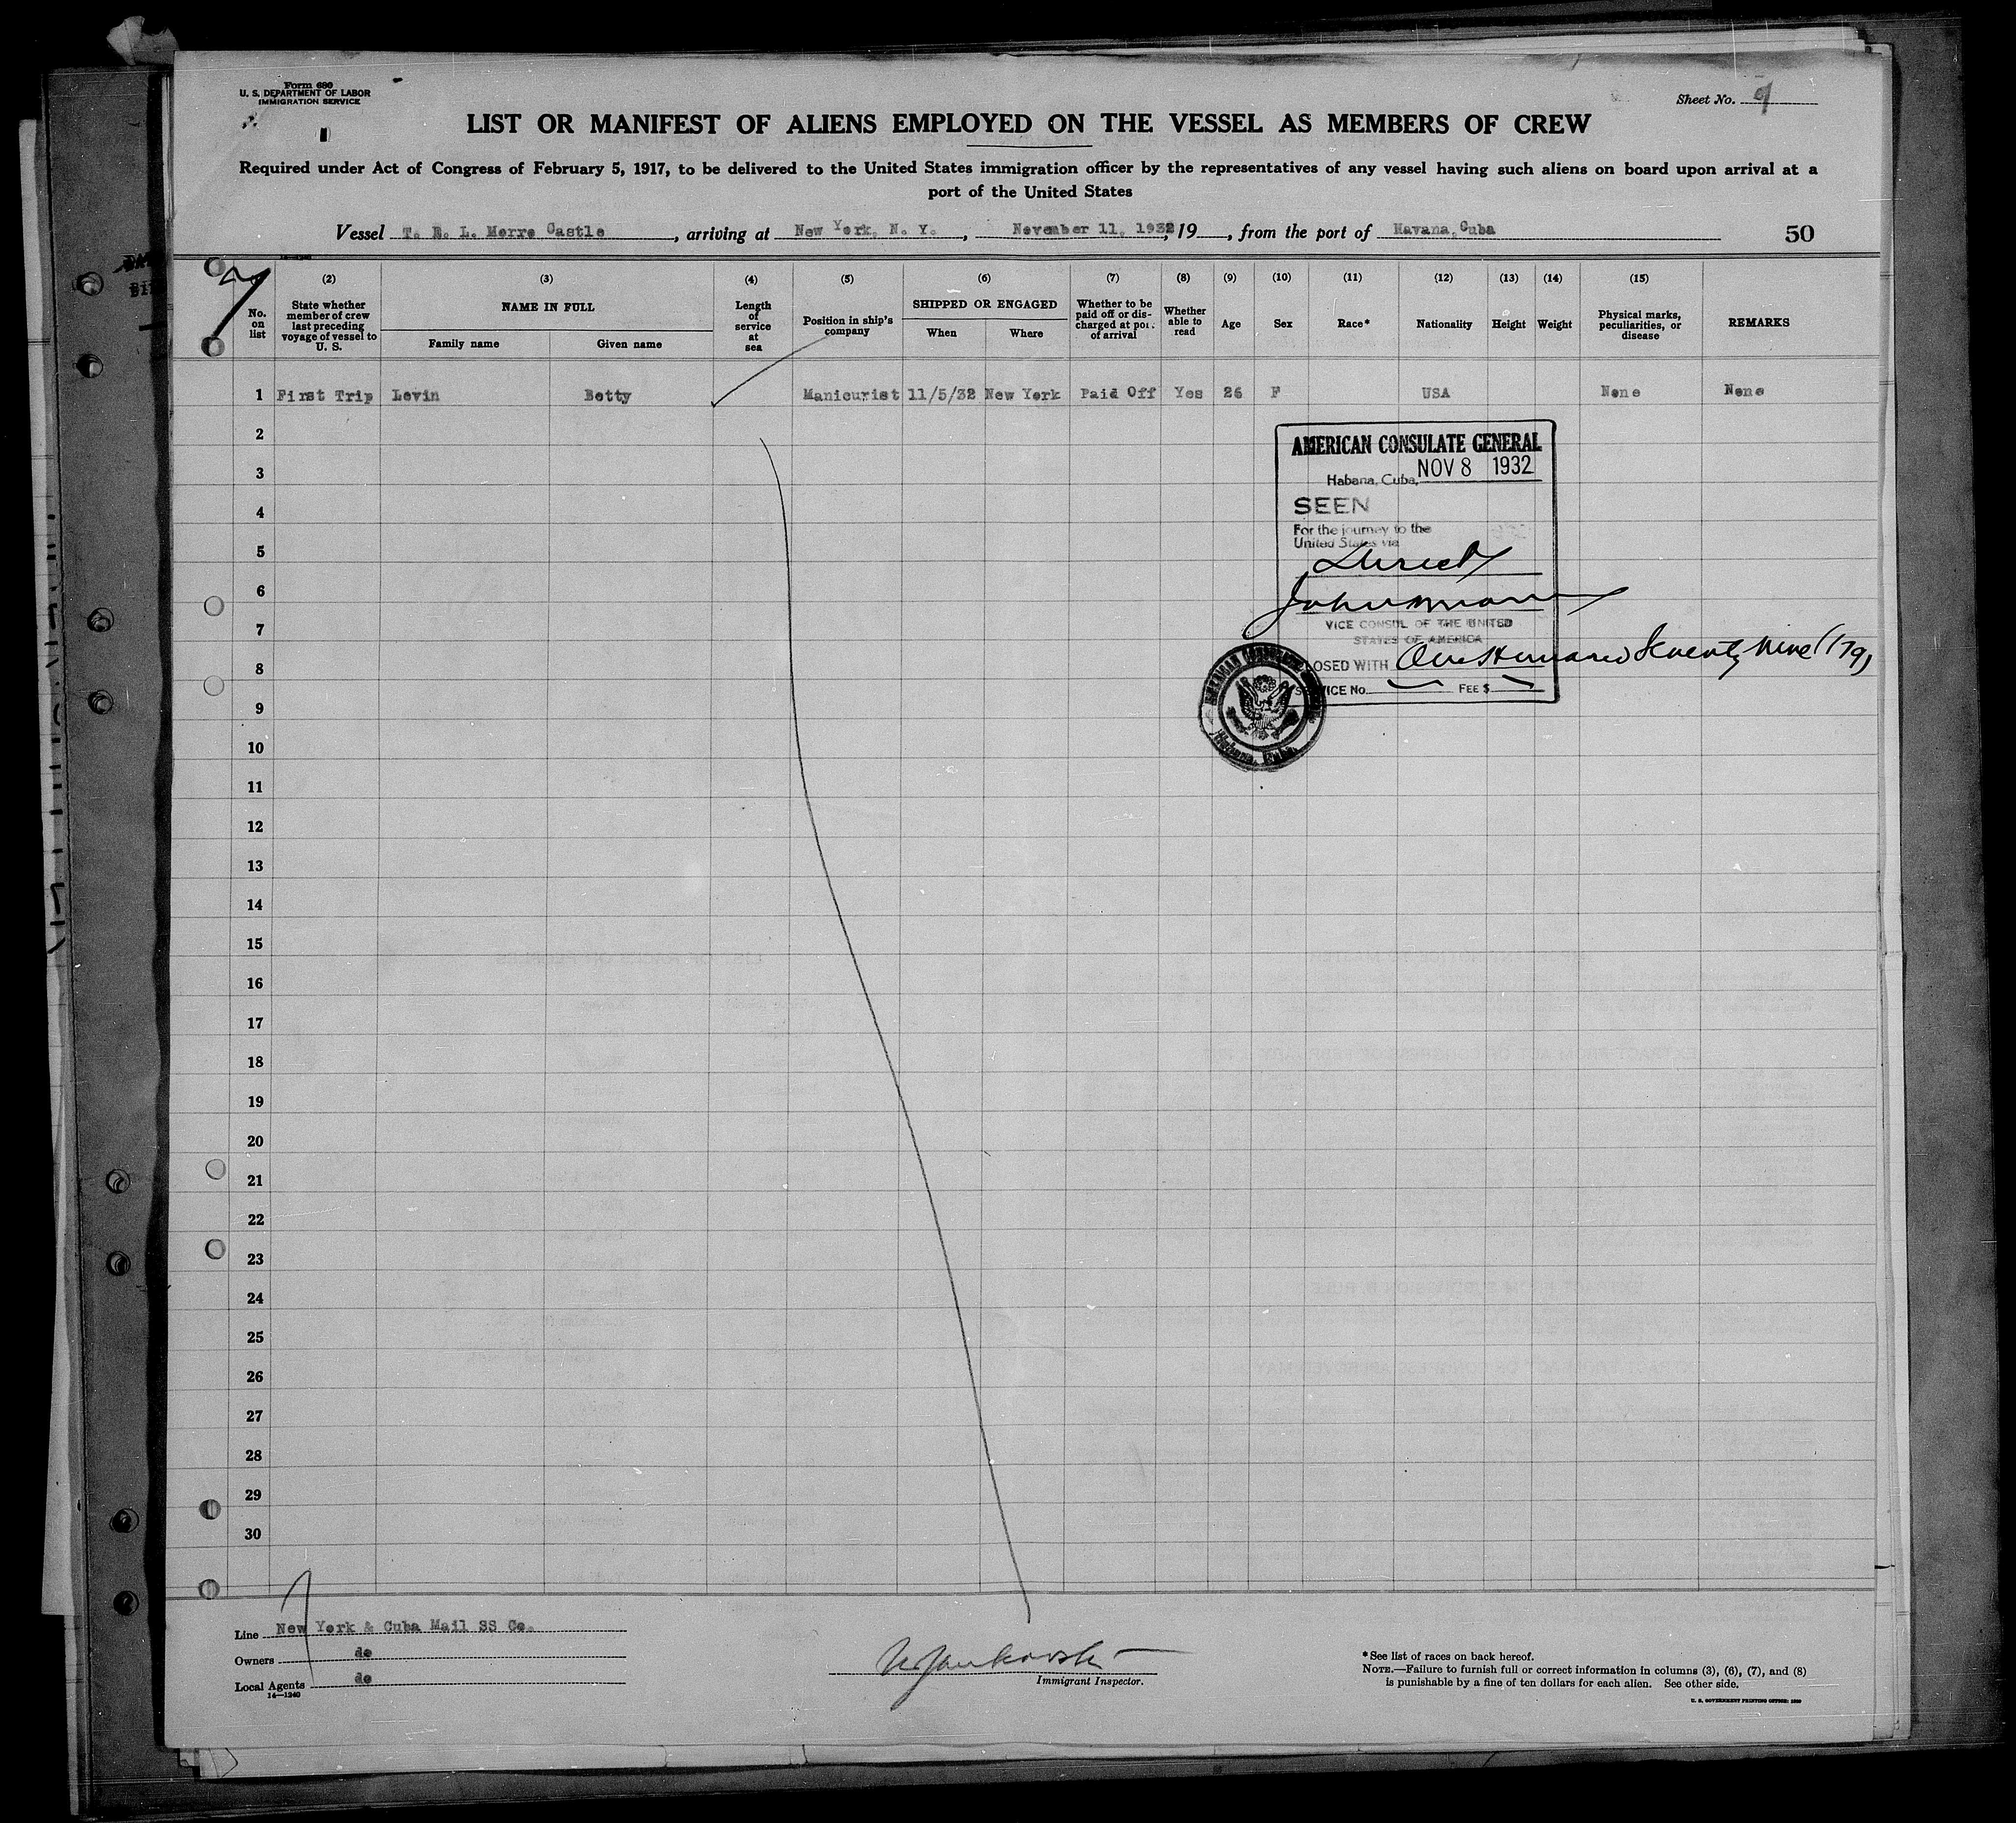 Form 680
U. S. DEPARTMENT OF LABOR
IMMIGRATION SERVICE
Sheet No.
LIST OR MANIFEST OF ALIENS EMPLOYED ON THE VESSEL AS MEMBERS OF CREW
Required under Act of Congress of February 5, 1917, to be delivered to the United States immigration officer by the representatives of any vessel having such aliens on board upon arrival at a
port of the United States
Vessel T. E. L. Morro Castle, arriving at New York, N. Y., November 11, 1932, 19 , from the port of Havana, Cuba 50
No. on list
(2) State whether member of crew last preceding voyage of vessel to U. S.
(3) NAME IN FULL
Family name Given name
(4) Length of service at sea
(5) Position in ship's company
(6) SHIPPED OR ENGAGED
When Where
(7) Whether to be paid off or discharged at port of arrival
(8) Whether able to read
(9) Age
(10) Sex
(11) Race*
(12) Nationality
(13) Height
(14) Weight
(15) Physical marks, peculiarities, or disease
REMARKS
1 First Trip Levin Betty Manicurist 11/5/32 New York Paid Off Yes 26 F USA None None
2
3
4
5
6
7
8
9
10
11
12
13
14
15
16
17
18
19
20
21
22
23
24
25
26
27
28
29
30
AMERICAN CONSULATE GENERAL
Habana, Cuba, NOV 8 1932
SEEN
For the journey to the
United States via
Direct
VICE CONSUL OF THE UNITED
STATES OF AMERICA
CLOSED WITH One Hundred Seventy Nine (179)
SERVICE No. FEE $
Habana, Cuba.
Line New York & Cuba Mail SS Co.
Owners do
Local Agents do
14—1240
Immigrant Inspector.
* See list of races on back hereof.
NOTE.—Failure to furnish full or correct information in columns (3), (6), (7), and (8)
is punishable by a fine of ten dollars for each alien. See other side.